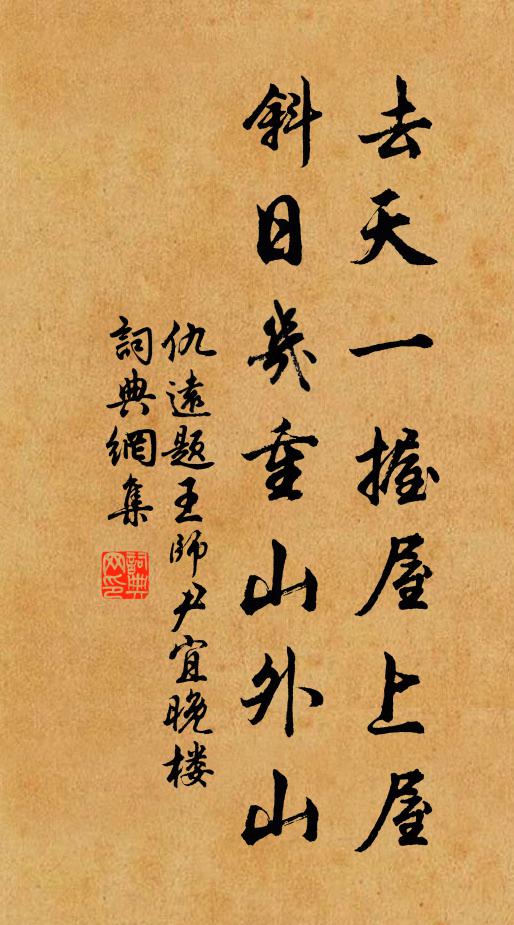 去天一握屋上屋
斜日幾重山外山
仇遠题王師尹宜晚楼
詞典網集
詞典網印